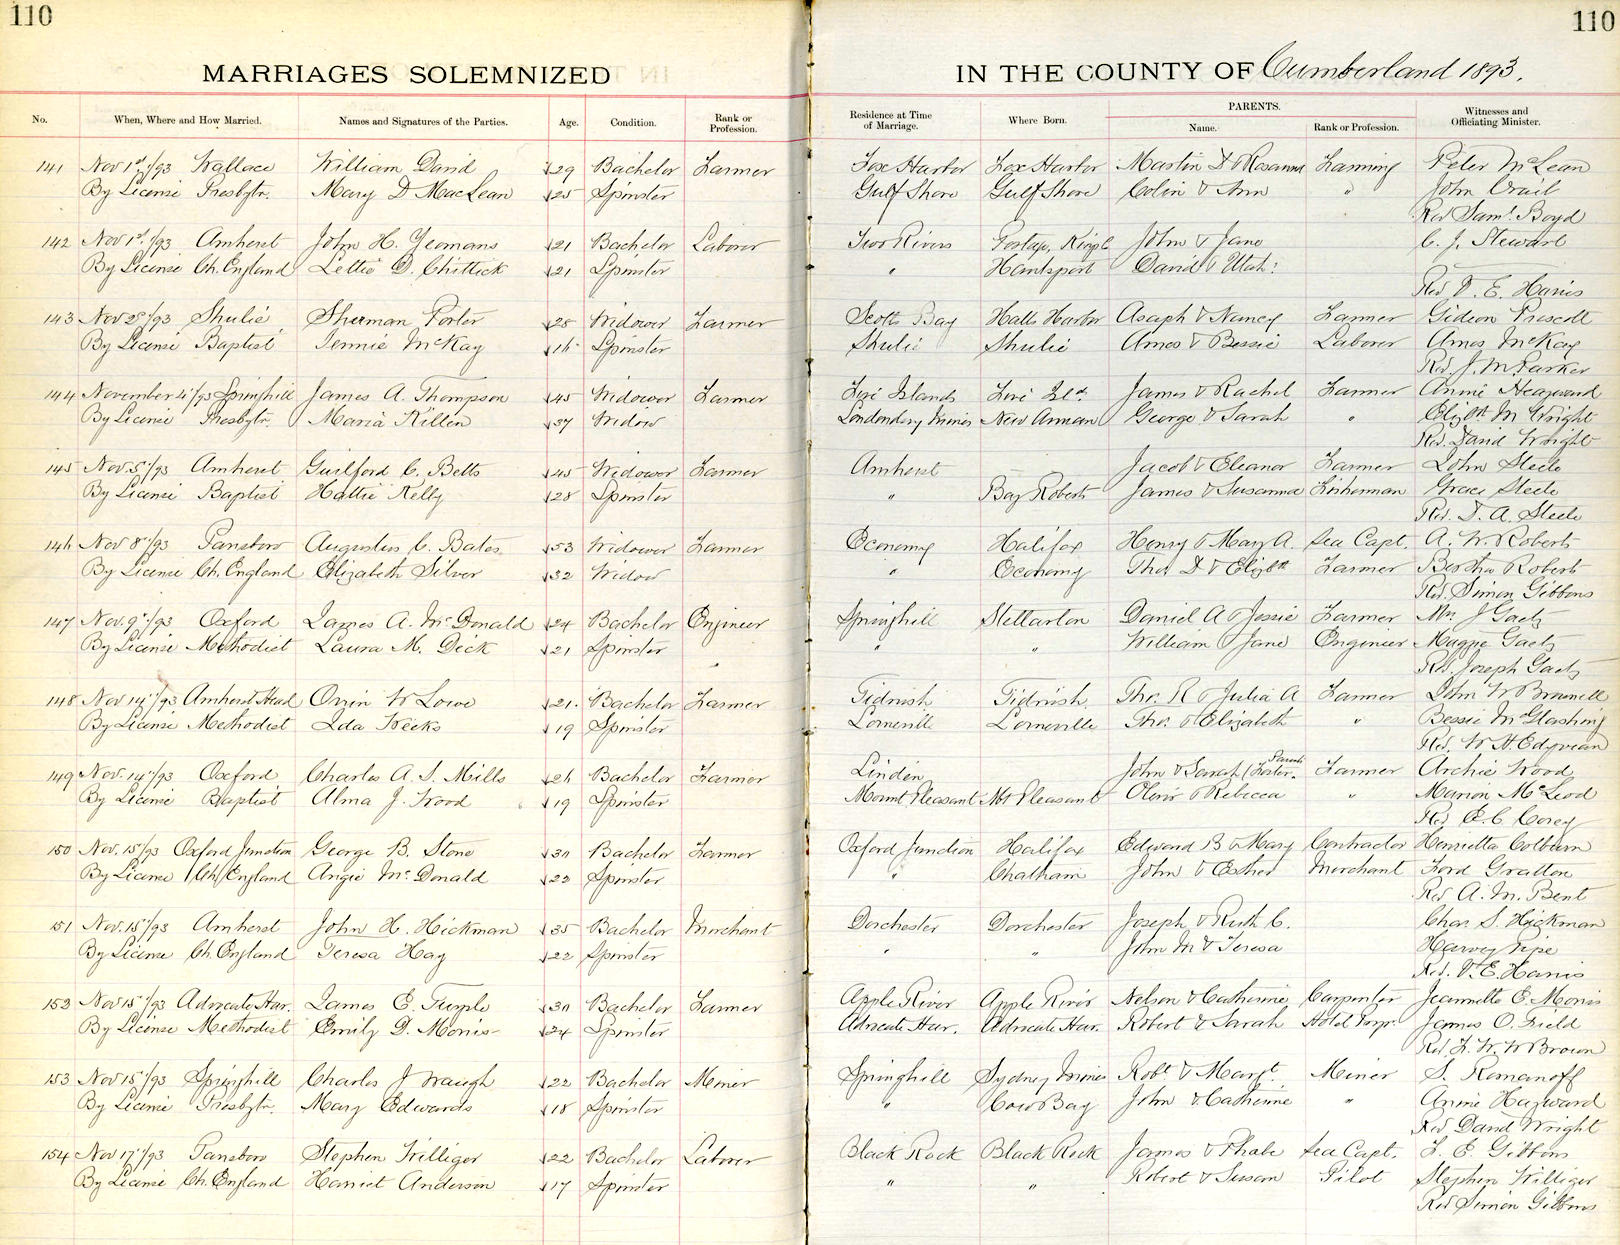 110
110
MARRIAGES SOLEMNIZED IN THE COUNTY OF Cumberland 1893.
No. When, Where and How Married. Names and Signatures of the Parties. Age. Condition. Rank or Profession. Residence at Time of Marriage. Where Born. PARENTS. Name. Rank or Profession. Witnesses and Officiating Minister.
141 Nov 1st/93 Wallace William David 29 Bachelor Farmer Fox Harbor Fox Harbor Martin D & Rosanna Farming Peter McLean
By License Presbytr. Mary D MacLean 25 Spinster Gulf Shore Gulf Shore Colin & Ann " John
Rev Saml. Boyd
142 Nov 1st/93 Amherst John H. Yeomans 21 Bachelor Laborer Two Rivers John & Jane C. J. Stewart
By License Ch. England Lettie D. Chittick 21 Spinster " Hantsport David &
Rev V. E. Harris
143 Nov 2d/93 Shulie Sherman Porter 28 Widower Farmer Scotts Bay Halls Harbor Asaph & Nancy Farmer Gideon Prescott
By License Baptist Jennie McKay 16 Spinster Shulie Shulie Amos & Bessie Laborer Amos McKay
Rev. J. M. Parker
144 November 4/93 Springhill James A. Thompson 45 Widower Farmer Five Islands Five Ild. James & Rachel Farmer Annie Hayward
By License Presbytr. Maria Killen 37 Widow Londonderry Mines New Annan George & Sarah " Elizbth M Wright
Rev. David Wright
145 Nov. 5/93 Amherst Guilford C. Betts 45 Widower Farmer Amherst Jacob & Eleanor Farmer John Steele
By License Baptist Hattie Kelly 28 Spinster " Bay Roberts James & Susanna Fisherman Grace Steele
Rev. D. A. Steele
146 Nov 8/93 Parrsboro Augustus C. Bates 53 Widower Farmer Economy Halifax Henry & Mary A. Sea Capt. A. W. Roberts
By License Ch. England Elizabeth Silver 32 Widow " Economy Thos D & Elizbth Farmer Bertha Roberts
Rev. Simon Gibbons
147 Nov. 9/93 Oxford James A. McDonald 24 Bachelor Engineer Springhill Stellarton Daniel A & Jessie Farmer Mrs J Gaetz
By License Methodist Laura M. Dick 21 Spinster " " " William & Jane Engineer Maggie Gaetz
Rev. Joseph Gaetz
148 Nov 14/93 Amherst Head Orrin W Lowe 21. Bachelor Farmer Tidnish Tidnish Tho. R & Julia A Farmer John W Brownell
By License Methodist Ida Weeks 19 Spinster Lorneville Lorneville Tho. & Elizabeth " Bessie McGlashing
Rev. W. H. Edyvean
149 Nov. 14/93 Oxford Charles A. S. Mills 26 Bachelor Farmer Linden John & Sarah (Foster Parents Farmer Archie Wood
By License Baptist Alma J. Wood 19 Spinster Mount Pleasant Mt Pleasant Oliver & Rebecca " Marion McLeod
Rev E. C. Corey
150 Nov. 15/93 Oxford Junction George B. Stone 30 Bachelor Farmer Oxford Junction Halifax Edward B & Mary Contractor Henrietta Colburn
By License Ch England Angie McDonald 23 Spinster " Chatham John & Esther Merchant Ford Gratton
Rev A. M. Bent
151 Nov. 15/93 Amherst John H. Hickman 35 Bachelor Merchant Dorchester Dorchester Joseph & Ruth C. Chas. S. Hickman
By License Ch. England Teresa Hay 22 Spinster " " John M & Teresa Harvey Pipe
Rev. V. E. Harris
152 Nov 15/93 Advocate Har. James E. Turple 30 Bachelor Farmer Apple River Apple River Nelson & Catherine Carpenter Jeannette E. Morris
By License Methodist Emily D. Morris 24 Spinster Advocate Har. Advocate Har. Robert & Sarah Hotel Propr. James O. Field
Rev. F. W. W Brown
153 Nov 15/93 Springhill Charles J Waugh 22 Bachelor Miner Springhill Sydney Mines Robt & Margt. Miner S. Romanoff
By License Presbytr. Mary Edwards 18 Spinster " Cow Bay John & Catherine " Annie Hayward
Rev David Wright
154 Nov 17/93 Parrsboro Stephen Williger 22 Bachelor Laborer Black Rock Black Rock James & Phobe Sea Capt. F. E. Gibbons
By License Ch. England Harriet Anderson 17 Spinster " " Robert & Susan Pilot Stephen Williger
Rev Simon Gibbons